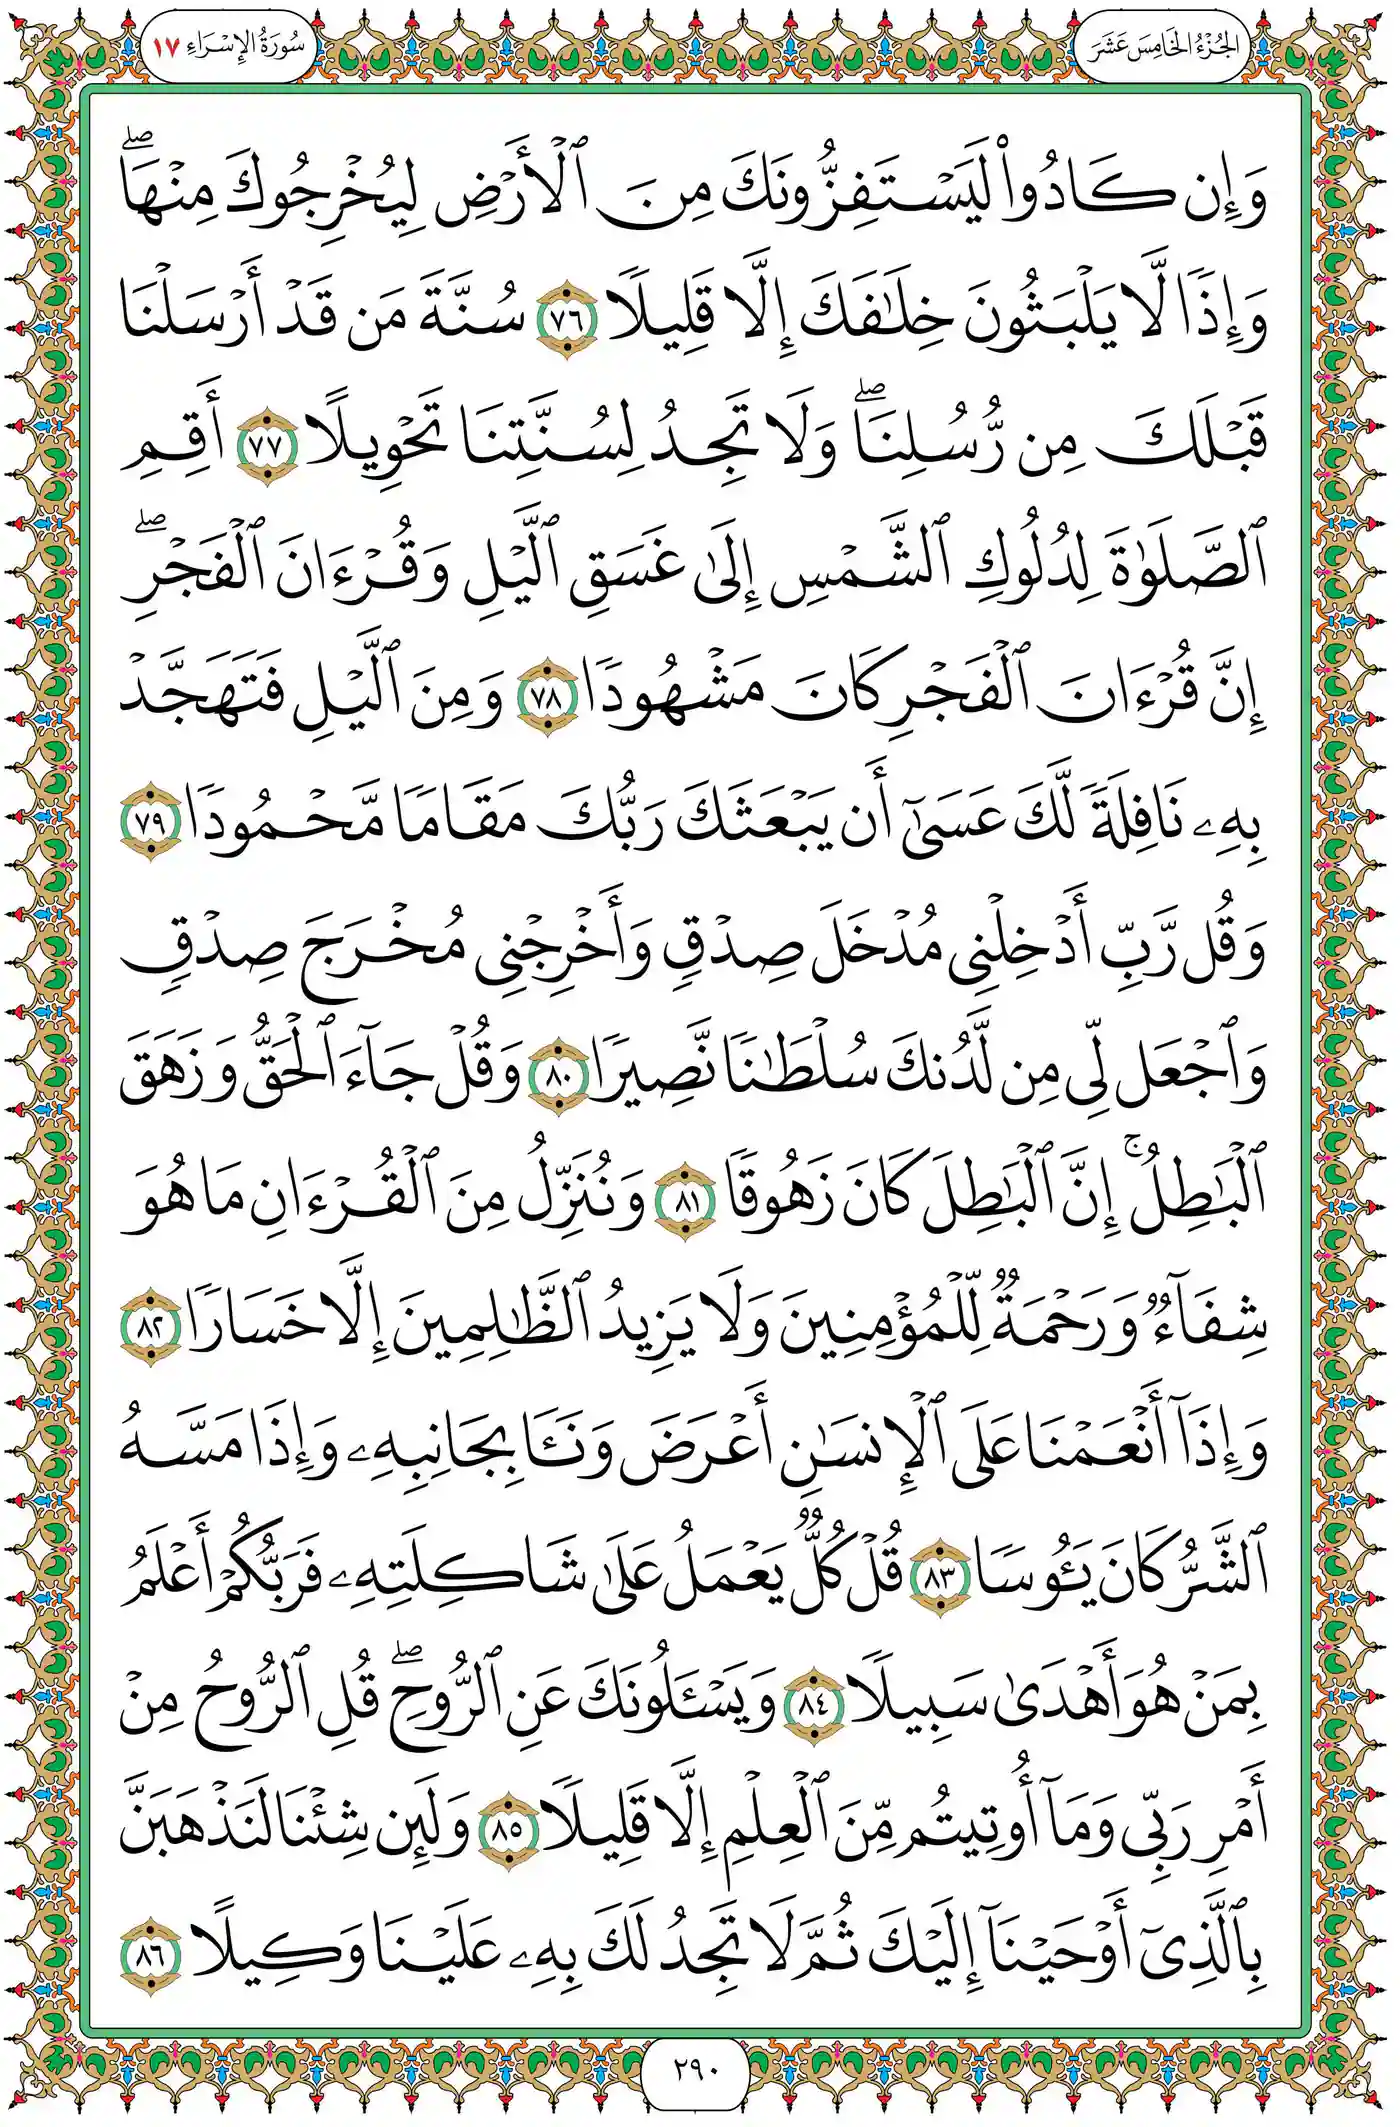 الجُزْءُ الخَامِسَ عَشَرَ
سُورَةُ الإِسْرَاءِ ١٧
وَإِن كَادُوا۟ لَيَسْتَفِزُّونَكَ مِنَ ٱلْأَرْضِ لِيُخْرِجُوكَ مِنْهَا ۖ
وَإِذًا لَّا يَلْبَثُونَ خِلَـٰفَكَ إِلَّا قَلِيلًا ٧٦ سُنَّةَ مَن قَدْ أَرْسَلْنَا
قَبْلَكَ مِن رُّسُلِنَا ۖ وَلَا تَجِدُ لِسُنَّتِنَا تَحْوِيلًا ٧٧ أَقِمِ
ٱلصَّلَوٰةَ لِدُلُوكِ ٱلشَّمْسِ إِلَىٰ غَسَقِ ٱلَّيْلِ وَقُرْءَانَ ٱلْفَجْرِ ۖ
إِنَّ قُرْءَانَ ٱلْفَجْرِ كَانَ مَشْهُودًا ٧٨ وَمِنَ ٱلَّيْلِ فَتَهَجَّدْ
بِهِۦ نَافِلَةً لَّكَ عَسَىٰٓ أَن يَبْعَثَكَ رَبُّكَ مَقَامًا مَّحْمُودًا ٧٩
وَقُل رَّبِّ أَدْخِلْنِى مُدْخَلَ صِدْقٍ وَأَخْرِجْنِى مُخْرَجَ صِدْقٍ
وَٱجْعَل لِّى مِن لَّدُنكَ سُلْطَـٰنًا نَّصِيرًا ٨٠ وَقُلْ جَآءَ ٱلْحَقُّ وَزَهَقَ
ٱلْبَـٰطِلُ ۚ إِنَّ ٱلْبَـٰطِلَ كَانَ زَهُوقًا ٨١ وَنُنَزِّلُ مِنَ ٱلْقُرْءَانِ مَا هُوَ
شِفَآءٌ وَرَحْمَةٌ لِّلْمُؤْمِنِينَ وَلَا يَزِيدُ ٱلظَّـٰلِمِينَ إِلَّا خَسَارًا ٨٢
وَإِذَآ أَنْعَمْنَا عَلَى ٱلْإِنسَـٰنِ أَعْرَضَ وَنَـَٔا بِجَانِبِهِۦ وَإِذَا مَسَّهُ
ٱلشَّرُّ كَانَ يَـُٔوسًا ٨٣ قُلْ كُلٌّ يَعْمَلُ عَلَىٰ شَاكِلَتِهِۦ فَرَبُّكُمْ أَعْلَمُ
بِمَنْ هُوَ أَهْدَىٰ سَبِيلًا ٨٤ وَيَسْـَٔلُونَكَ عَنِ ٱلرُّوحِ ۖ قُلِ ٱلرُّوحُ مِنْ
أَمْرِ رَبِّى وَمَآ أُوتِيتُم مِّنَ ٱلْعِلْمِ إِلَّا قَلِيلًا ٨٥ وَلَئِن شِئْنَا لَنَذْهَبَنَّ
بِٱلَّذِىٓ أَوْحَيْنَآ إِلَيْكَ ثُمَّ لَا تَجِدُ لَكَ بِهِۦ عَلَيْنَا وَكِيلًا ٨٦
٢٩٠